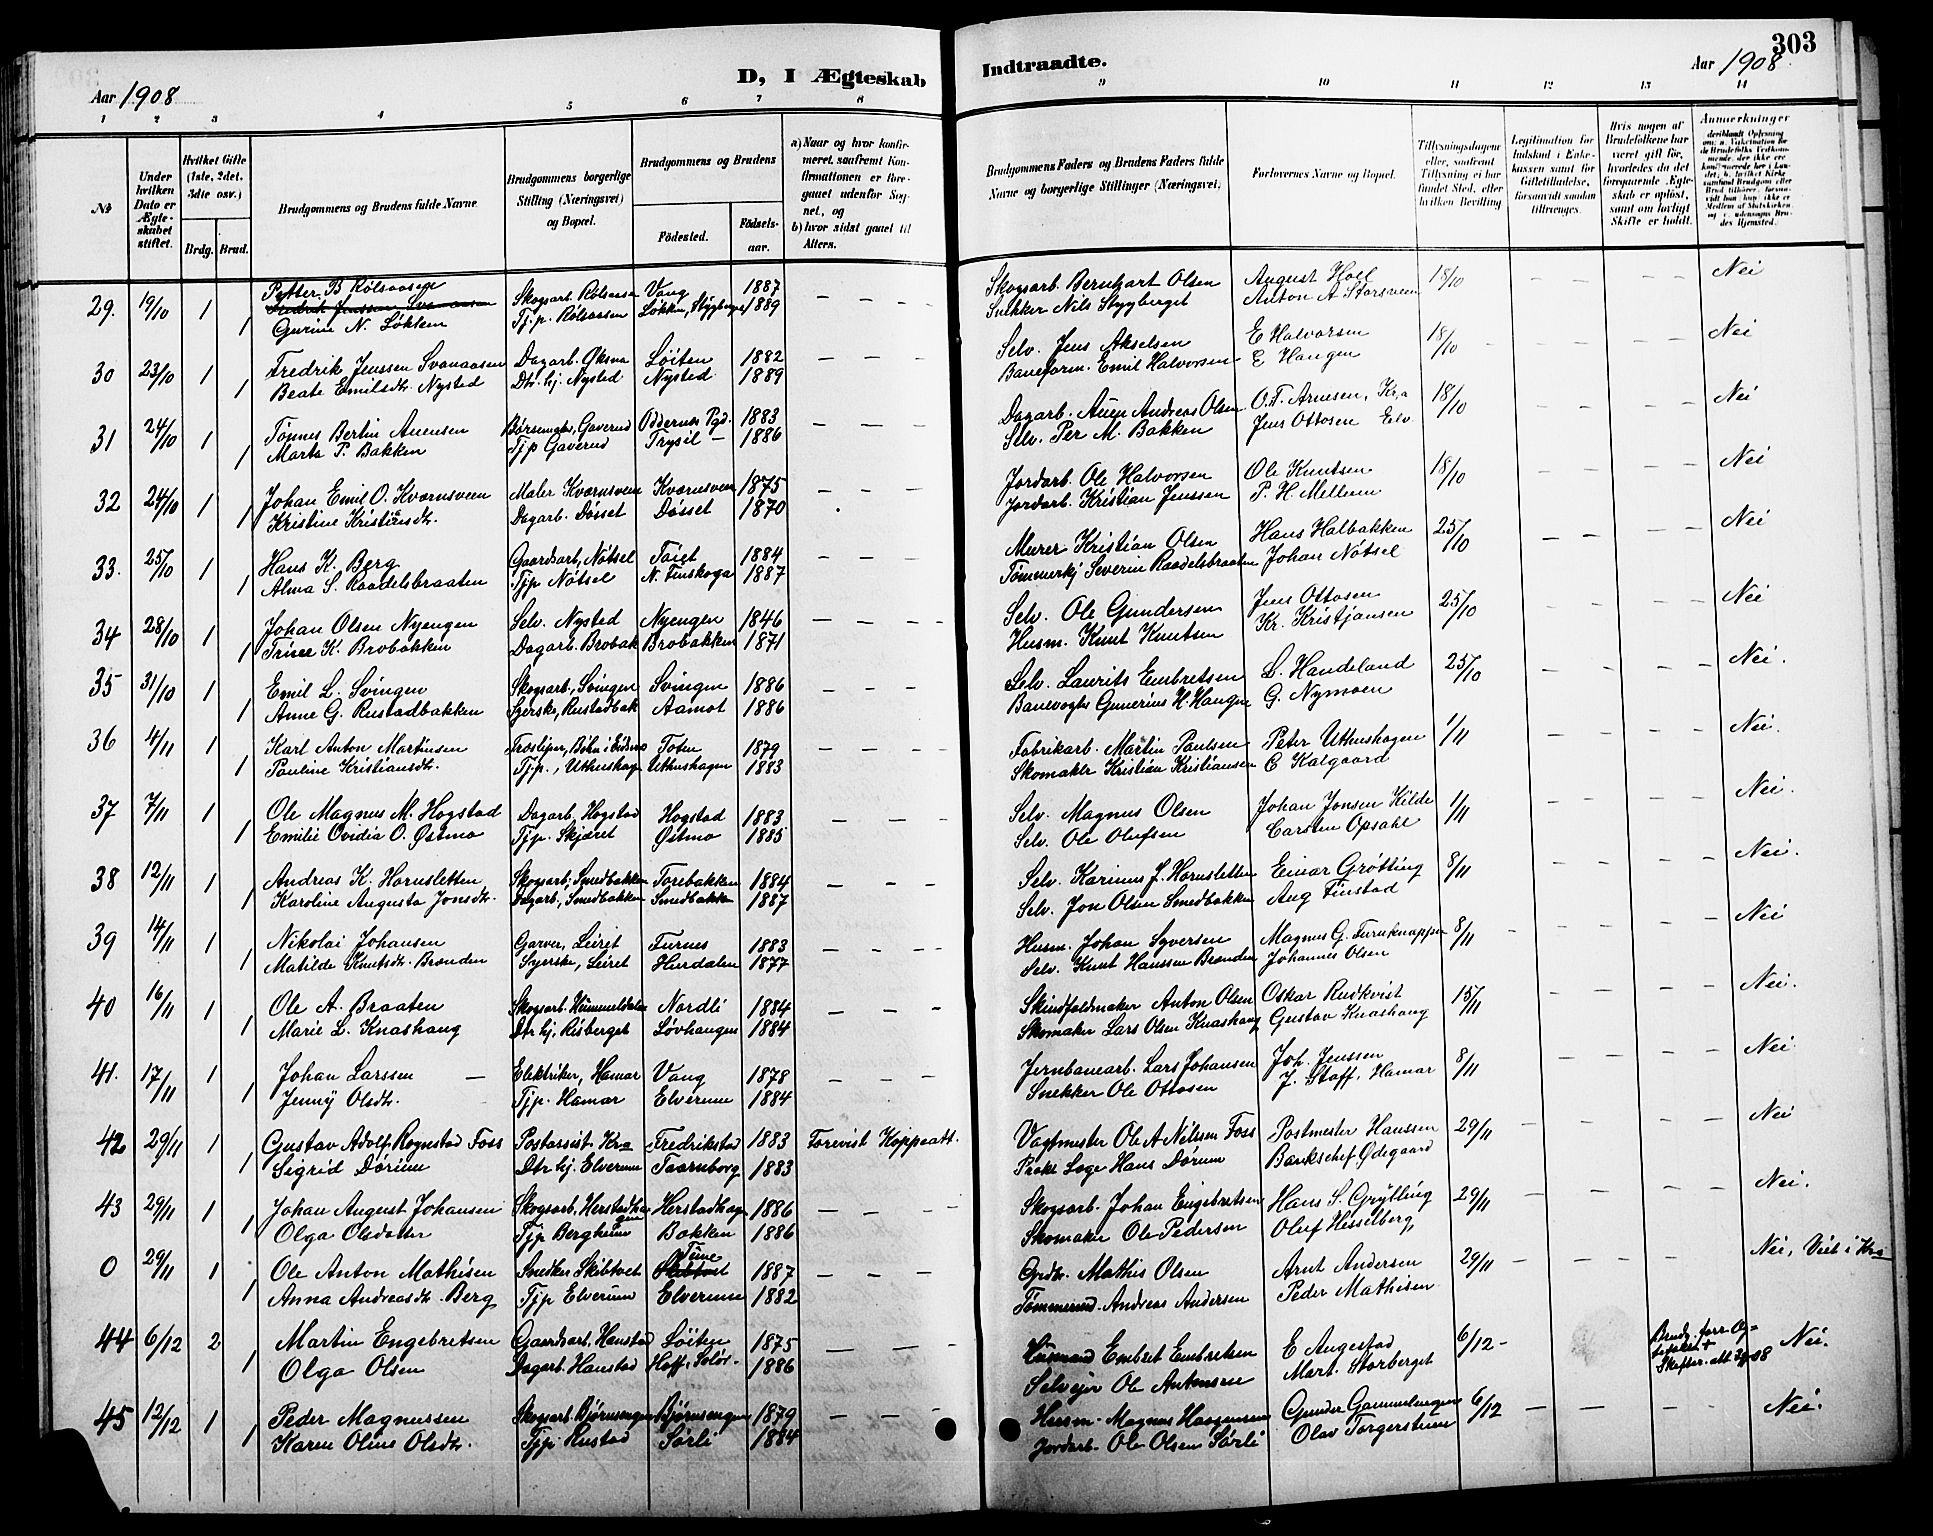 303
Aar 1908
D, I Ægteskab
Indtraadte.
Aar 1908.
1 2 3 4 5 6 7 8 9 10 11 12 13 14
№
Under hvilken Dato er Ægteskabet stiftet.
Hvilket Gifte (1ste, 2det, 3die osv.)
Brdg. Brud.
Brudgommens og Brudens fulde Navne.
Brudgommens borgerlige Stilling (Næringsvei) og Bopæl.
Brudgommens og Brudens
Fødested.
Fødselsaar.
a) Naar og hvor konfirmeret, saafremt Konfirmationen er foregaaet udenfor Sognet, og
b) hvor sidst gaaet til Alters.
Brudgommens Faders og Brudens Faders fulde Navne og borgerlige Stillinger (Næringsvei)
Forlovernes Navne og Bopæl.
Tillysningsdagene eller, saafremt Tillysning ei har fundet Sted, efter hvilken Bevilling
Legitimation for Indskud i Enkekassen samt for Giftetilladelse, forsaavidt saadan tiltrænges.
Hvis nogen af Brudefolkene har været gift før, hvorledes da det foregaaende Ægteskab er opløst, samt om lovligt Skifte er holdt.
Anmerkninger
29. 19/10 1 Petter B Rølsaasen Skogsarb. Rølsaasen Vang 1887 – – – Skogsarb. Bernhart Olsen August Holl 18/10 – – – Nei
1 Gurine N. Løkken Tj.p. Rølsaasen Løkken, Stygberget 1889 Snekker Nils Stygberget Anton A Storsveen
30 23/10 1 Fredrik Jenssen Svanaasen Dagarb. Øksna Løiten 1882 – – – Selv. Jens Akselsen E Halvorsen 18/10 – – – Nei
1 Beate Emilsdtr. Nysted Dtr. hj. Nysted Nysted 1889 Baneform. Emil Halvorsen E Haugen
31 24/10 1 Tønnes Bertin Auensen Børsemak, Gaverud Oddernes Pgd. 1883 – – – Dagarb. Auen Andreas Olsen O.T. Arnesen, Kr.a 18/10 – – – Nei
1 Marta P. Bakken Tjp Gaverud Trysil – 1886 Selv. Per M. Bakken Jens Ottosen Elv.
32 24/10 1 Johan Emil O. Kvernsveen Maler Kvernsveen Kvernsveen 1875 – – – Jordarb. Ole Halvorsen Ole Knutsen 18/10 – – – Nei
1 Kristine Kristiansdtr. Dagarb. Døsset Døsset 1870 Jordarb. Kristian Jenssen P. H. Mellem
33. 25/10 1 Hans K. Berg Gaardsarb, Nøtsel Taiet 1884 – – – Murer Kristian Olsen Hans Halbakken 25/10 – – – – Nei
1 Alma S. Raadelsbraaten Tjp Nøtsel N. Finskoga 1887 Tømmerkj Severin Raadelsbraaten Johan Nøtsel
34 28/10 1 Johan Olsen Nyengen Selv. Nysted Nyengen 1846 – – – Selv. Ole Gundersen Jens Ottosen 25/10 – – – – Nei
1 K. Brobakken Dagarb. Brobak Brobakken 1871 Husm. Knut Knutsen Kr. Kristjansen
35 31/10 1 Emil L. Svingen Skogsarb., Svingen Svingen 1886 – – – Selv. Laurits Embretsen L. Handeland 25/10 – – – – Nei.
1 Anne G. Rustadbakken Syerske, Rustadbak Aamot 1886 Banevogts Gunerius H. Haugen G. Nymoen
36 4/11 1 Karl Anton Martinsen Træsliper, Bøhn i Eidsvo Toten 1879 – – – Fabrikarb. Martin Paulsen Peter Uthushagen 1/11 – – – – Nei.
1 Pauline Kristiansdtr. Tj.p., Uthushag Uthushagen 1883 Skomaker Kristian Kristiansen C Kalgaard
37 7/11 1 Ole Magnus M. Hogstad Dagarb, Hogstad Hogstad 1883 – – – Selv. Magnus Olsen Johan Jonsen Kilde 1/11 – – – – Nei.
1 Emilie Ovidia O. Østmo Tjp. Skjæret Østmo 1885 Selv. Ole Olufsen Carsten Opsahl
38 12/11 1 Andreas K. Hornsletten Skogsarb; Smedbakken Torebakken 1884 – – – Selv. Karinus J. Hornsletten Einar Grøtting 8/11 – – – – Nei.
1 Karoline Augusta Jonsdtr. Dagarb, Smedbakken Smedbakken 1887 Selv. Jon Olsen Smedbakken Aug Finstad
39 14/11 1 Nikolai Johansen Garver, Leiret Furnes 1883 – – – Husm. Johan Syversen Magnus G. Furuknappen 8/11 – – – – Nei
1 Matilde Knutsdtr. Brønden Syerske, Leiret Hurdalen 1877 Selv. Knut Hanssen Brønden Johannes Olsen
40 16/11 1 Ole A. Braaten Skogsarb. Hummeldalen Nordli 1884 – – – Skindfeldmaker Anton Olsen Oskar Rudkvist 15/11 – – – – Nei.
1 Marie L. Knashaug Dtr hj. Risberget Løvhaugen 1884 Skomaker Lars Olsen Knashaug Gustav Knashaug
41. 17/11 1 Johan Larssen – Elektriker, Hamar Vang 1878 – – – Jernbanearb. Lars Johansen Joh. Jenssen 8/11 – – – – Nei.
1 Jenny Olsdtr. Tjp. Hamar Elverum 1884 Snekker Ole Ottosen J. Staff. Hamar
42 29/11 1 Gustav Adolf Rognstad Foss Postassist Kra Fredrikstad 1883 Forevist Koppeatt. Vagtmester Ole A Nilssen Foss Postmester Hanssen 29/11 – – – – Nei
1 Sigrid Dørum Dtr hj. Elverum Taarnborg 1883 Prakt Læge Hans Dørum Bankschef Ødegaard
43 29/11 1 Johan August Johansen Skogsarb, Herstadhagen Herstadhag 1886 – – – Skogsarb. Johan Engebretsen Hans S. Grylling 29/11 – – – – Nei.
1 Olga Olsdatter Tjp Bergheim Bakken 1886 Skomaker Ole Pedersen Oluf Hesselberg
0 29/11 1 Ole Anton Mathisen Snedker Skibtvet Time 1887 – – – Grdtr. Mathis Olsen Arnt Andersen 29/11 – – – – Nei, Viet i Kra
1 Anna Andreasdtr. Berg Tjp Elverum Elverum 1882 Tømmermd. Andreas Andersen Peder Mathisen
44 6/12 2 Martin Engebretsen Gaardsarb. Hanstad Løiten 1875 – – – Embret Embretsen E Angestad 6/12 – Skifteratt 3/9 08 Nei.
1 Olga Olsen Dagarb. Hanstad Hoff, Solør. 1886 Selveier Ole Antonsen Mart. Storberget
45 12/12 1 Peder Magnussen Skogsarb. Bjørnsengen Bjørnsengen 1879 – – – Husm. Magnus Haagensen Gunder Gammelengen 6/12 – – – – Nei.
1 Karen Oline Olsdtr. Tjp Rustad Sørli 1884 Jordarb. Ole Olsen Sørli Olav Torgerstuen